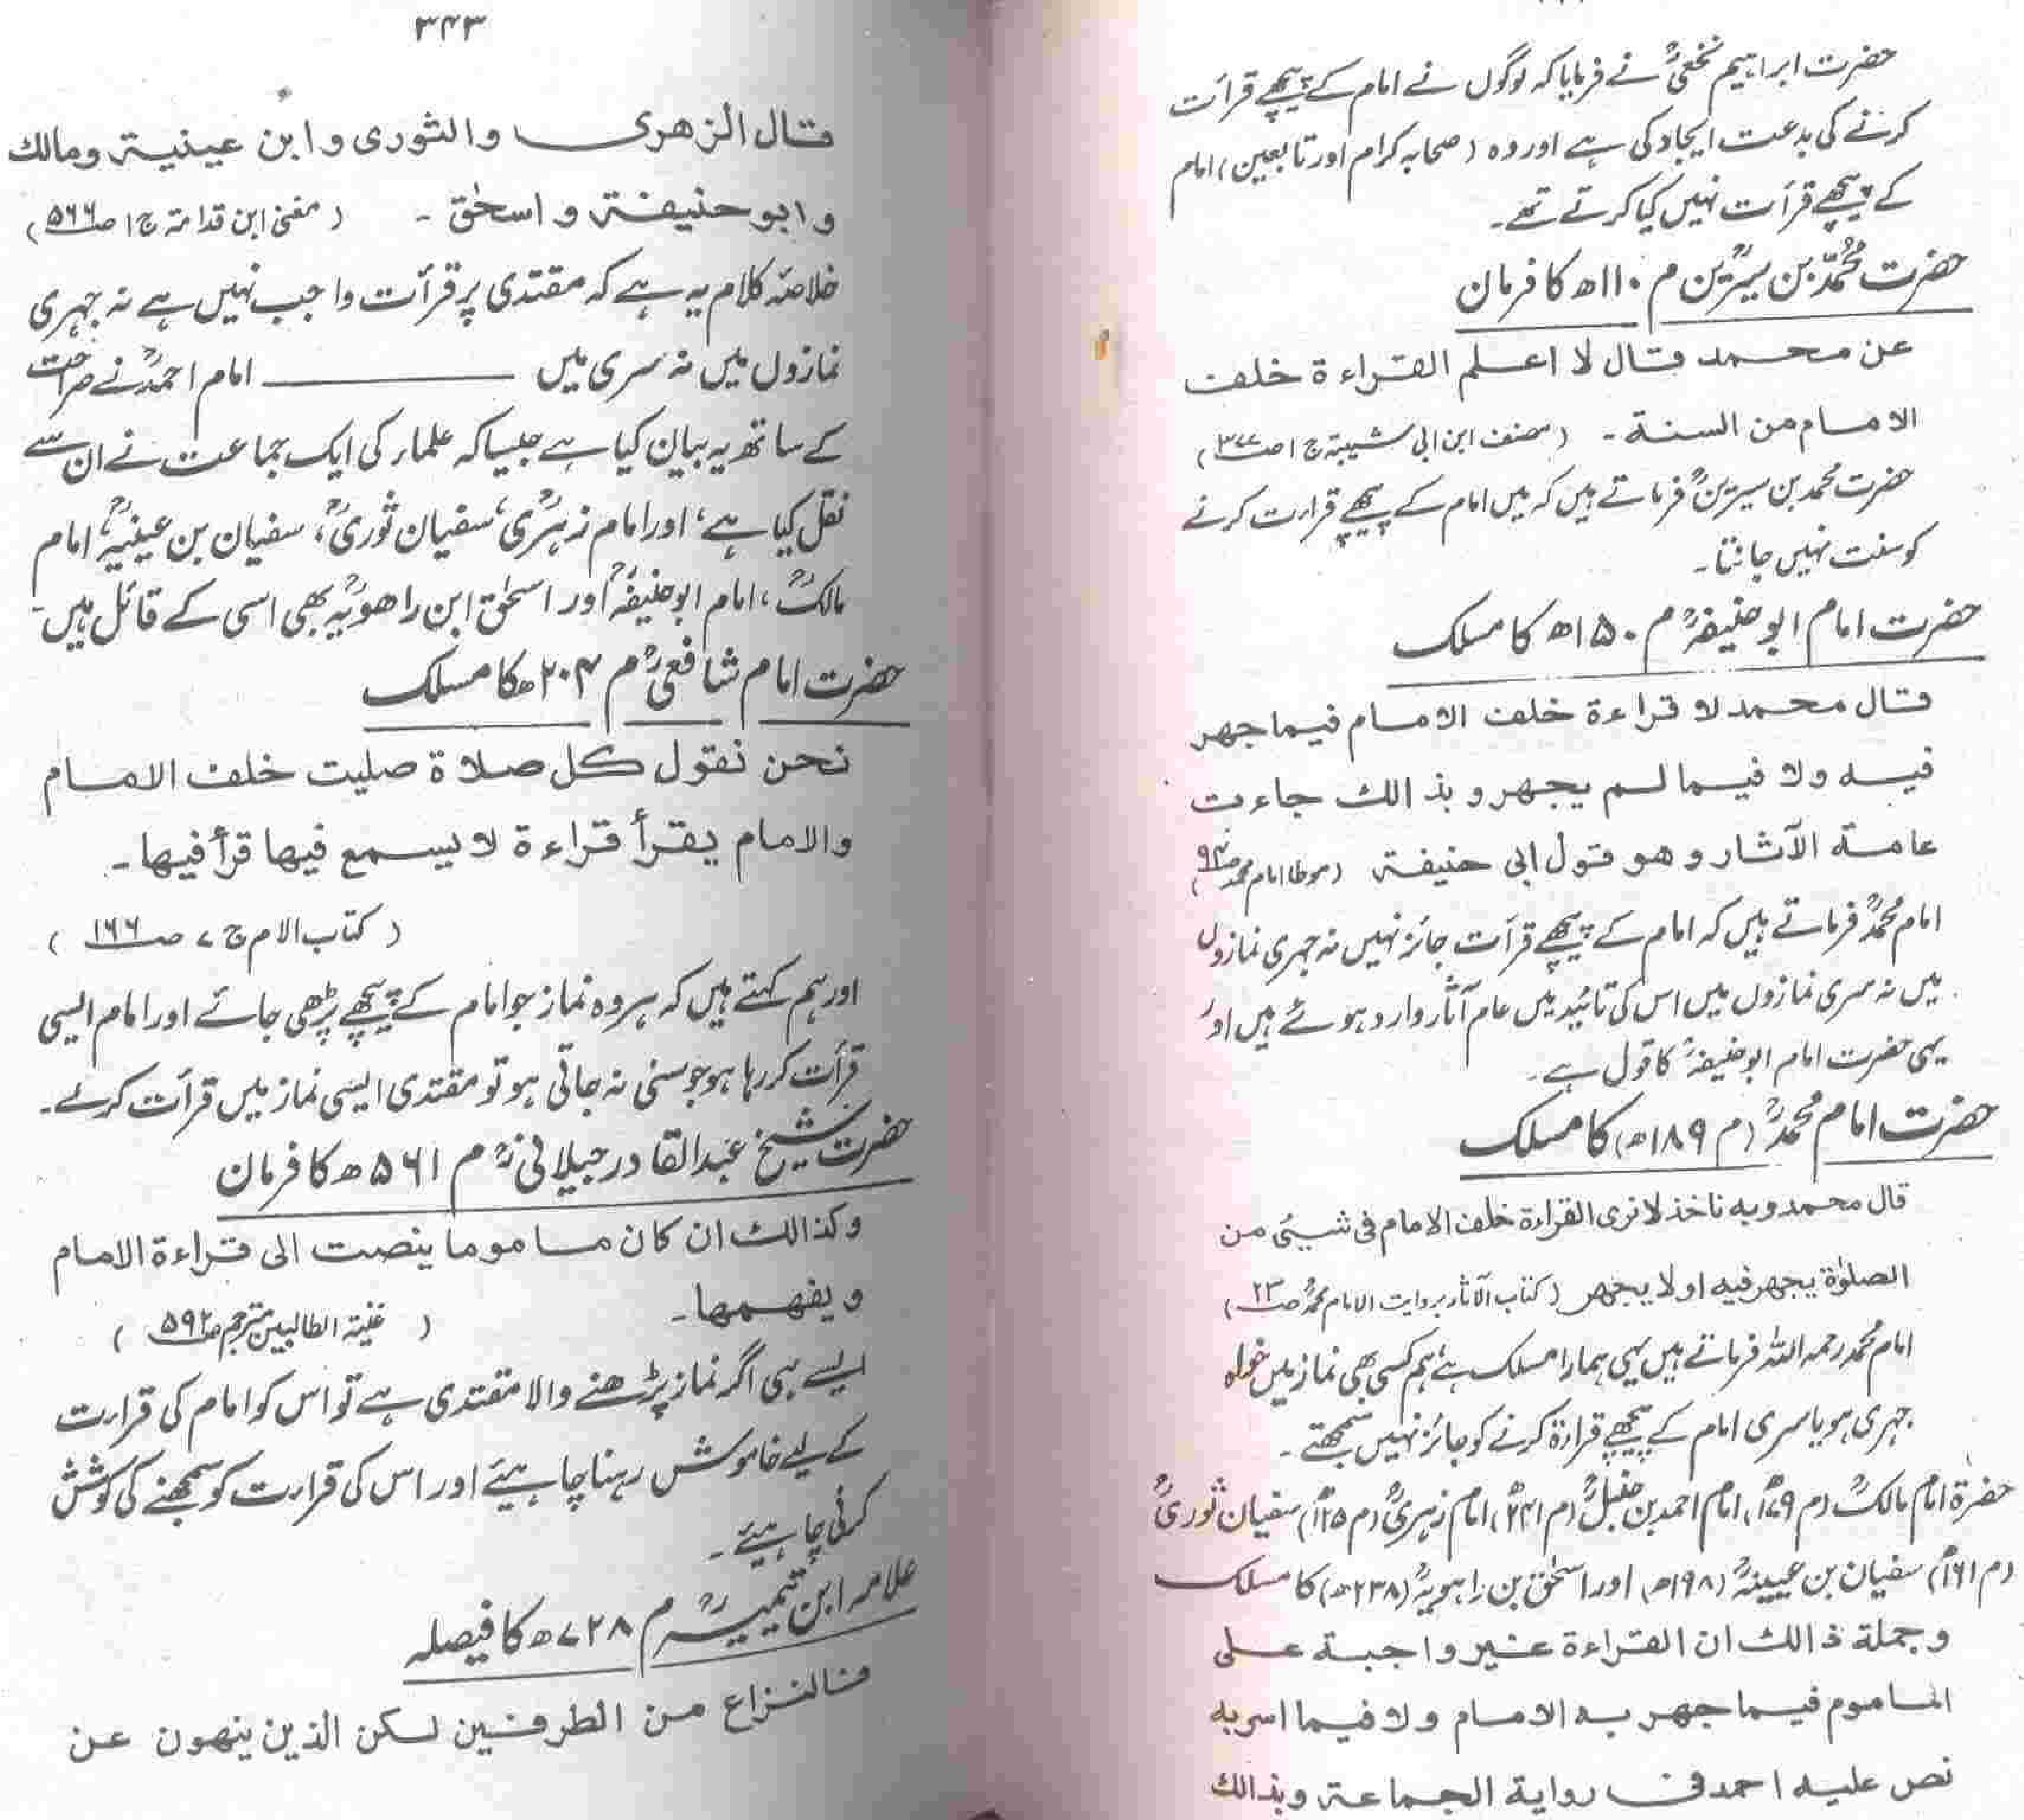 حضرت ابراہیم نخعیؒ نے فرمایا کہ لوگوں نے امام کے پیچھے قرأت
کرنے کی بدعت ایجاد کی ہے اور وہ (صحابہ کرام اور تابعین) امام
کے پیچھے قرأت نہیں کیا کرتے تھے۔
حضرت محمدؒ بن سیرین م ۱۱۰ھ کا فرمان
عن محمد قال لا اعلم القراءة خلف
الامام من السنة ۔ (مصنف ابن ابی شیبة ج ۱ ص ۳۷۷)
حضرت محمد بن سیرینؒ فرماتے ہیں کہ میں امام کے پیچھے قراءت کرنے
کو سنت نہیں جانتا۔
حضرت امام ابو حنیفہؒ م ۱۵۰ھ کا مسلک
قال محمد لا قراءة خلف الامام فيما جهر
فيه ولا فيما لم يجهر و بذالك جاءت
عامة الآثار و هو قول ابی حنيفة (موطا امام محمد ص۹۴)
امام محمدؒ فرماتے ہیں کہ امام کے پیچھے قرأت جائز نہیں نہ جہری نمازوں
میں نہ سری نمازوں میں اس کی تائید میں عام آثار وارد ہوئے ہیں اور
یہی حضرت امام ابو حنیفہؒ کا قول ہے۔
حضرت امام محمدؒ (م ۱۸۹ھ) کا مسلک
قال محمد وبه ناخذ لا نرى القراءة خلف الامام فی شیئ من
الصلوٰة يجهر فيه او لا يجهر (کتاب الآثار بروایت الامام محمدؒ ص ۲۳)
امام محمد رحمہ اللہ فرماتے ہیں یہی ہمارا مسلک ہے، ہم کسی بھی نماز میں خواہ
جہری ہو یا سری امام کے پیچھے قراءۃ کرنے کو جائز نہیں سمجھتے۔
حضرۃ امام مالکؒ (م ۱۷۹ھ)، امام احمد بن حنبلؒ (م ۲۴۱ھ)، امام زہریؒ (م ۱۲۵ھ) سفیان ثوریؒ
(م ۱۶۱ھ) سفیان بن عیینہؒ (۱۹۸ھ) اور اسحٰق بن راہویہؒ (۲۳۸ھ) کا مسلک
و جملة ذالك ان القراءة غير واجبة على
الماموم فيما جهر به الامام ولا فيما اسر به
نص عليه احمد فی رواية الجماعة و بذالك
۳۴۳
قال الزهری والثوری وابن عينية ومالك
وابو حنيفة و اسحٰق ۔ (مغنی ابن قدامة ج ۱ ص ۵۶۶)
خلاصۂ کلام یہ ہے کہ مقتدی پر قرأت واجب نہیں ہے نہ جہری
نمازوں میں نہ سری میں ــــــــ امام احمدؒ نے صراحت
کے ساتھ یہ بیان کیا ہے جیسا کہ علماء کی ایک جماعت نے ان سے
نقل کیا ہے، اور امام زہریؒ، سفیان ثوریؒ، سفیان بن عینیہؒ، امام
مالکؒ، امام ابو حنیفہؒ اور اسحٰق ابن راھویہؒ بھی اسی کے قائل ہیں۔
حضرت امام شافعیؒ م ۲۰۴ھ کا مسلک
نحن نقول كل صلاة صليت خلف الامام
والامام يقرأ قراءة لا يسمع فيها قرأ فيها۔
(کتاب الام ج ۷ ص ۱۶۶)
اور ہم کہتے ہیں کہ ہر وہ نماز جو امام کے پیچھے پڑھی جائے اور امام ایسی
قرأت کر رہا ہو جو سنی نہ جاتی ہو تو مقتدی ایسی نماز میں قرأت کرلے۔
حضرت شیخ عبدالقادر جیلانیؒ م ۵۶۱ھ کا فرمان
وكذالك ان كان ماموما ينصت الى قراءة الامام
و يفهمها۔ (غنیۃ الطالبین مترجم ص ۵۹۲)
ایسے ہی اگر نماز پڑھنے والا مقتدی ہے تو اس کو امام کی قراءت
کے لیے خاموش رہنا چاہیئے اور اس کی قراءت کو سمجھنے کی کوشش
کرنی چاہیئے۔
علامہ ابن تیمیہؒ م ۷۲۸ھ کا فیصلہ
فالنزاع من الطرفين لكن الذين ينهون عن